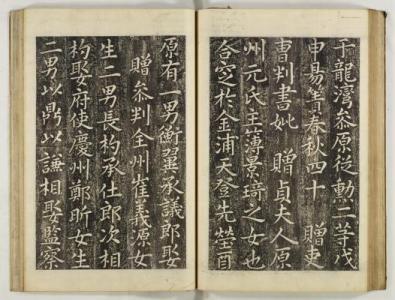 于龍灣叅原從勲二等戊
申易簀春秋四十 贈吏
曹判書妣 贈貞夫人原
州元氏主簿景琦之女也
合窆於金浦天登先塋酉
原有一男衡翼承議郎娶
贈叅判全州崔義源女
生二男長杓承仕郎次相
杓娶府使慶州鄭昕女生
二男以鼎以謙相娶監察